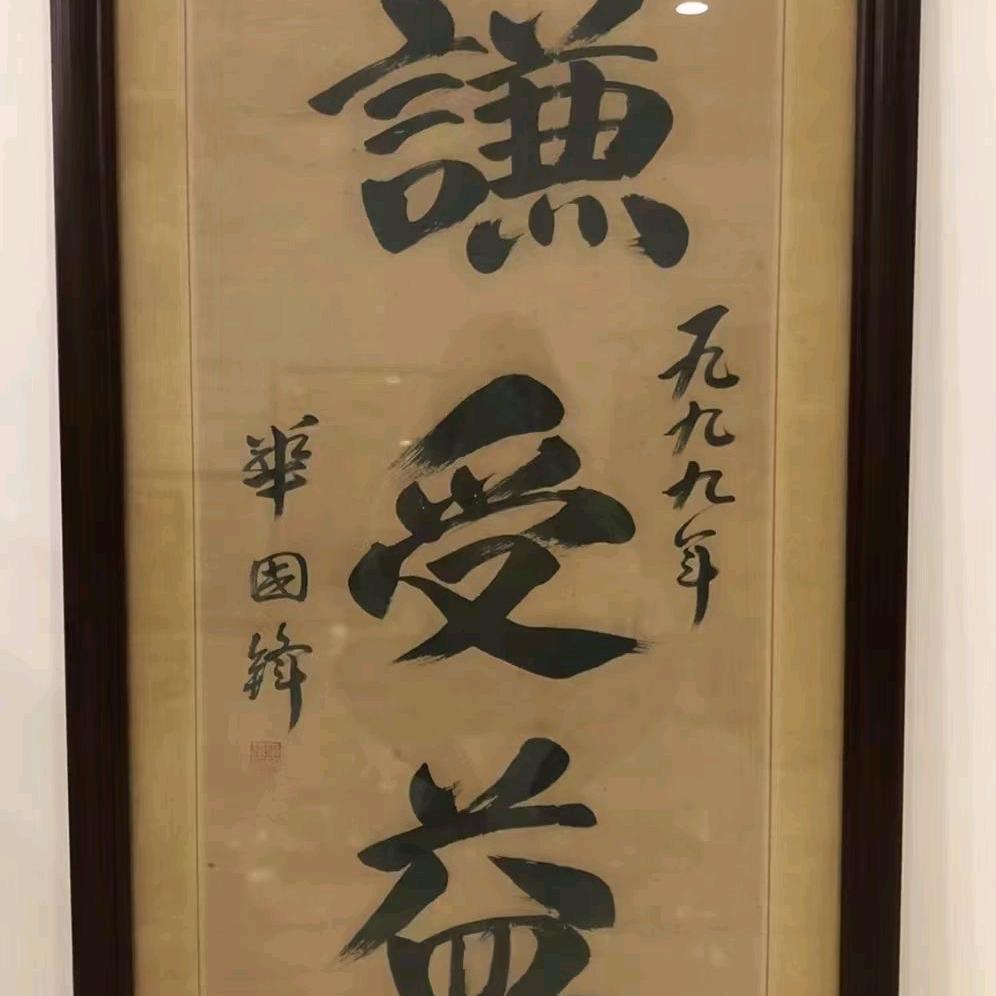 謙受益
一九九九年
華國鋒